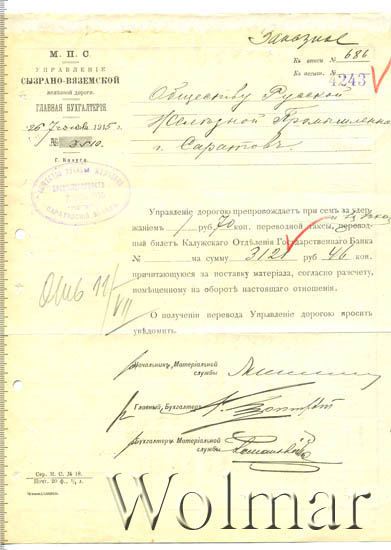 Заказное
М. П. С.
УПРАВЛЕНІЕ
СЫЗРАНО-ВЯЗЕМСКОЙ
желѣзной дороги.
ГЛАВНАЯ БУХГАЛТЕРІЯ
1915 г.
№
Г. Калуга.
Къ вносн. № 686
Къ исполн. №
4243
Обществу Русской
Желѣзной Промышленно
г. Саратовъ
Управленіе дорогою препровождаетъ при семъ за удер-
жаніемъ 1 руб. 70 коп. переводной таксы, перевод-
ный билетъ Калужскаго Отдѣленія Государственнаго Банка
№ на сумму 3121 руб. 46 коп.
причитающуюся за поставку матеріала, согласно разсчету,
помѣщенному на оборотѣ настоящаго отношенія.
О полученіи перевода Управленіе дорогою проситъ
увѣдомить.
Начальникъ Матеріальной
службы
Главный Бухгалтеръ
Бухгалтеръ Матеріальной
службы
Сер. М. С. № 18.
Wolmar